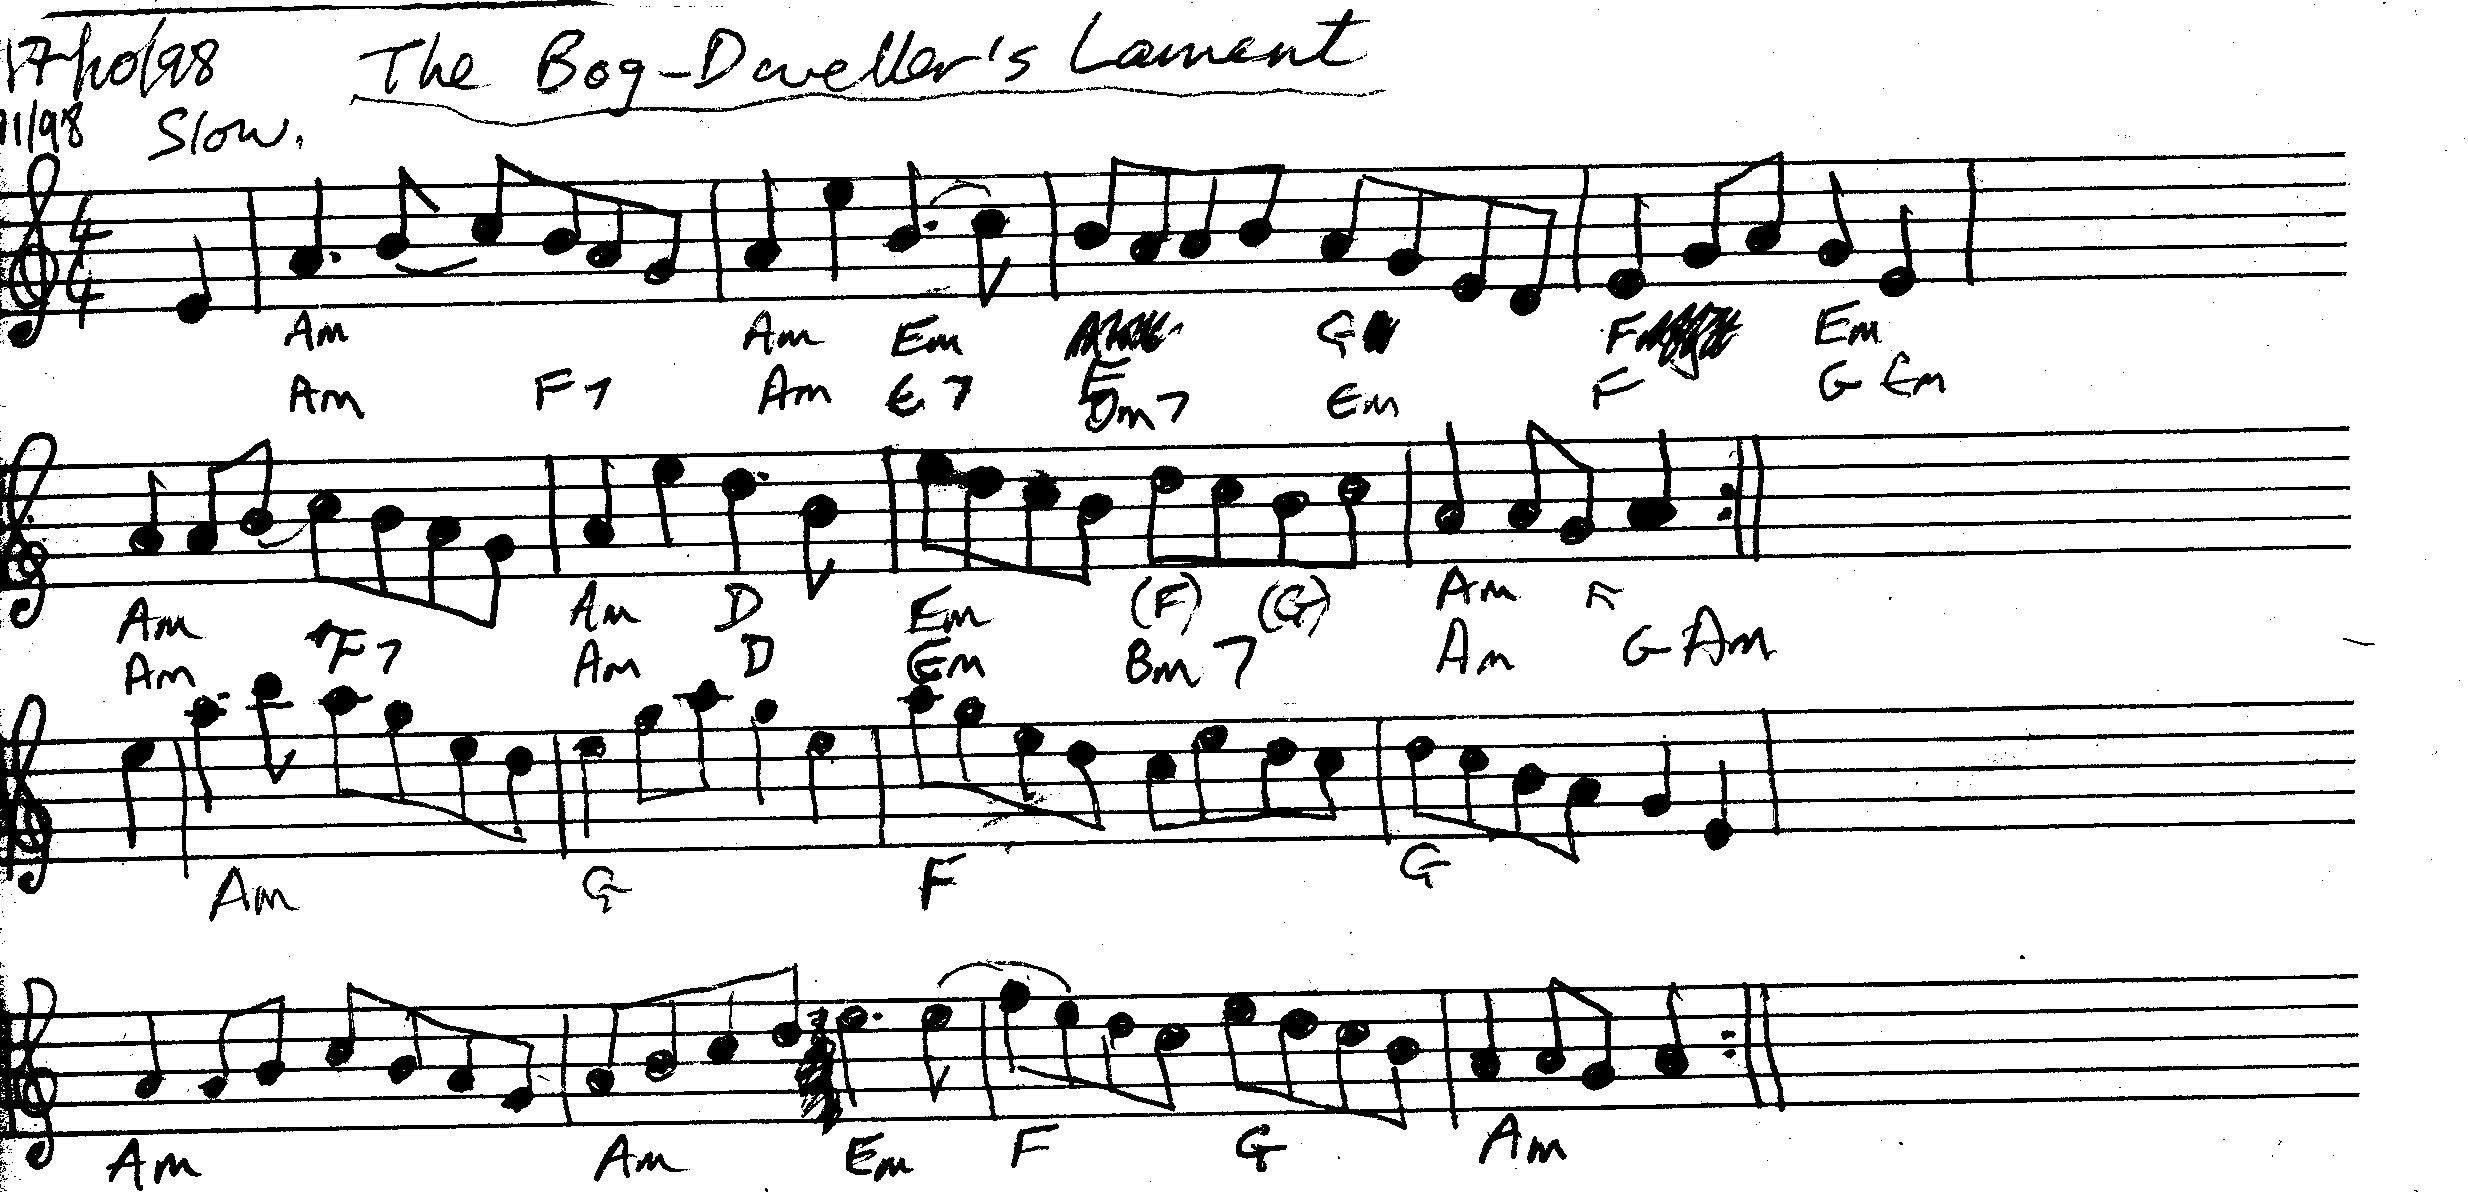 17/10/98 The Bog-Dweller's Lament
11/98 Slow.
4 4
Am Am Em G F Em
Am F7 Am E7 F Dm7 Em F G Em
Am Am D Em (F) (G) Am F
Am F7 Am D Em Bm7 Am G Am
Am G F G
Am Am Em F G Am